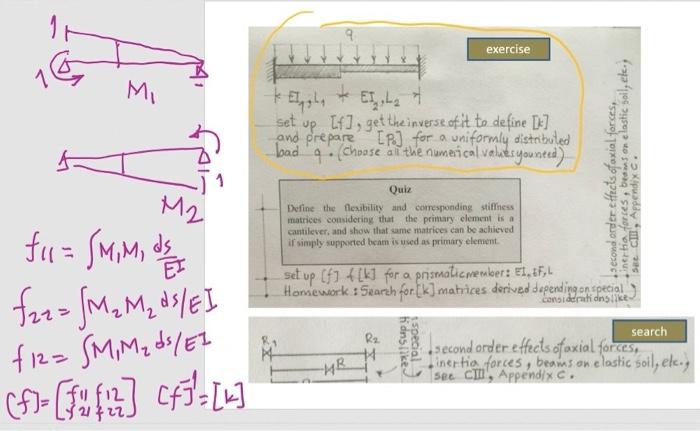 1
1
M1
1
M2
f11 = ∫M1M1 ds/EI
f22 = ∫M2M2 ds/EI
f12 = ∫M1M2 ds/EI
[f]=[f11 f12 f21 f22] [f]-1=[k]
q
exercise
EI1,L1 EI2,L2
set up [f], get the inverse of it to define [k]
and prepare [P0] for a uniformly distributed
load q. (Choose all the numerical values you need)
Quiz
Define the flexibility and corresponding stiffness
matrices considering that the primary element is a
cantilever, and show that same matrices can be achieved
if simply supported beam is used as primary element.
set up [f] & [k] for a prismatic member: EI, EF, L
Homework: Search for [k] matrices derived depending on special
considerations like
.second order effects of axial forces,
.inertia forces, beams on elastic soil, etc.,
see CIII, Appendix C.
search
R1 R2
R
special
tions like
.second order effects of axial forces,
.inertia forces, beams on elastic soil, etc.,
see CIII, Appendix C.